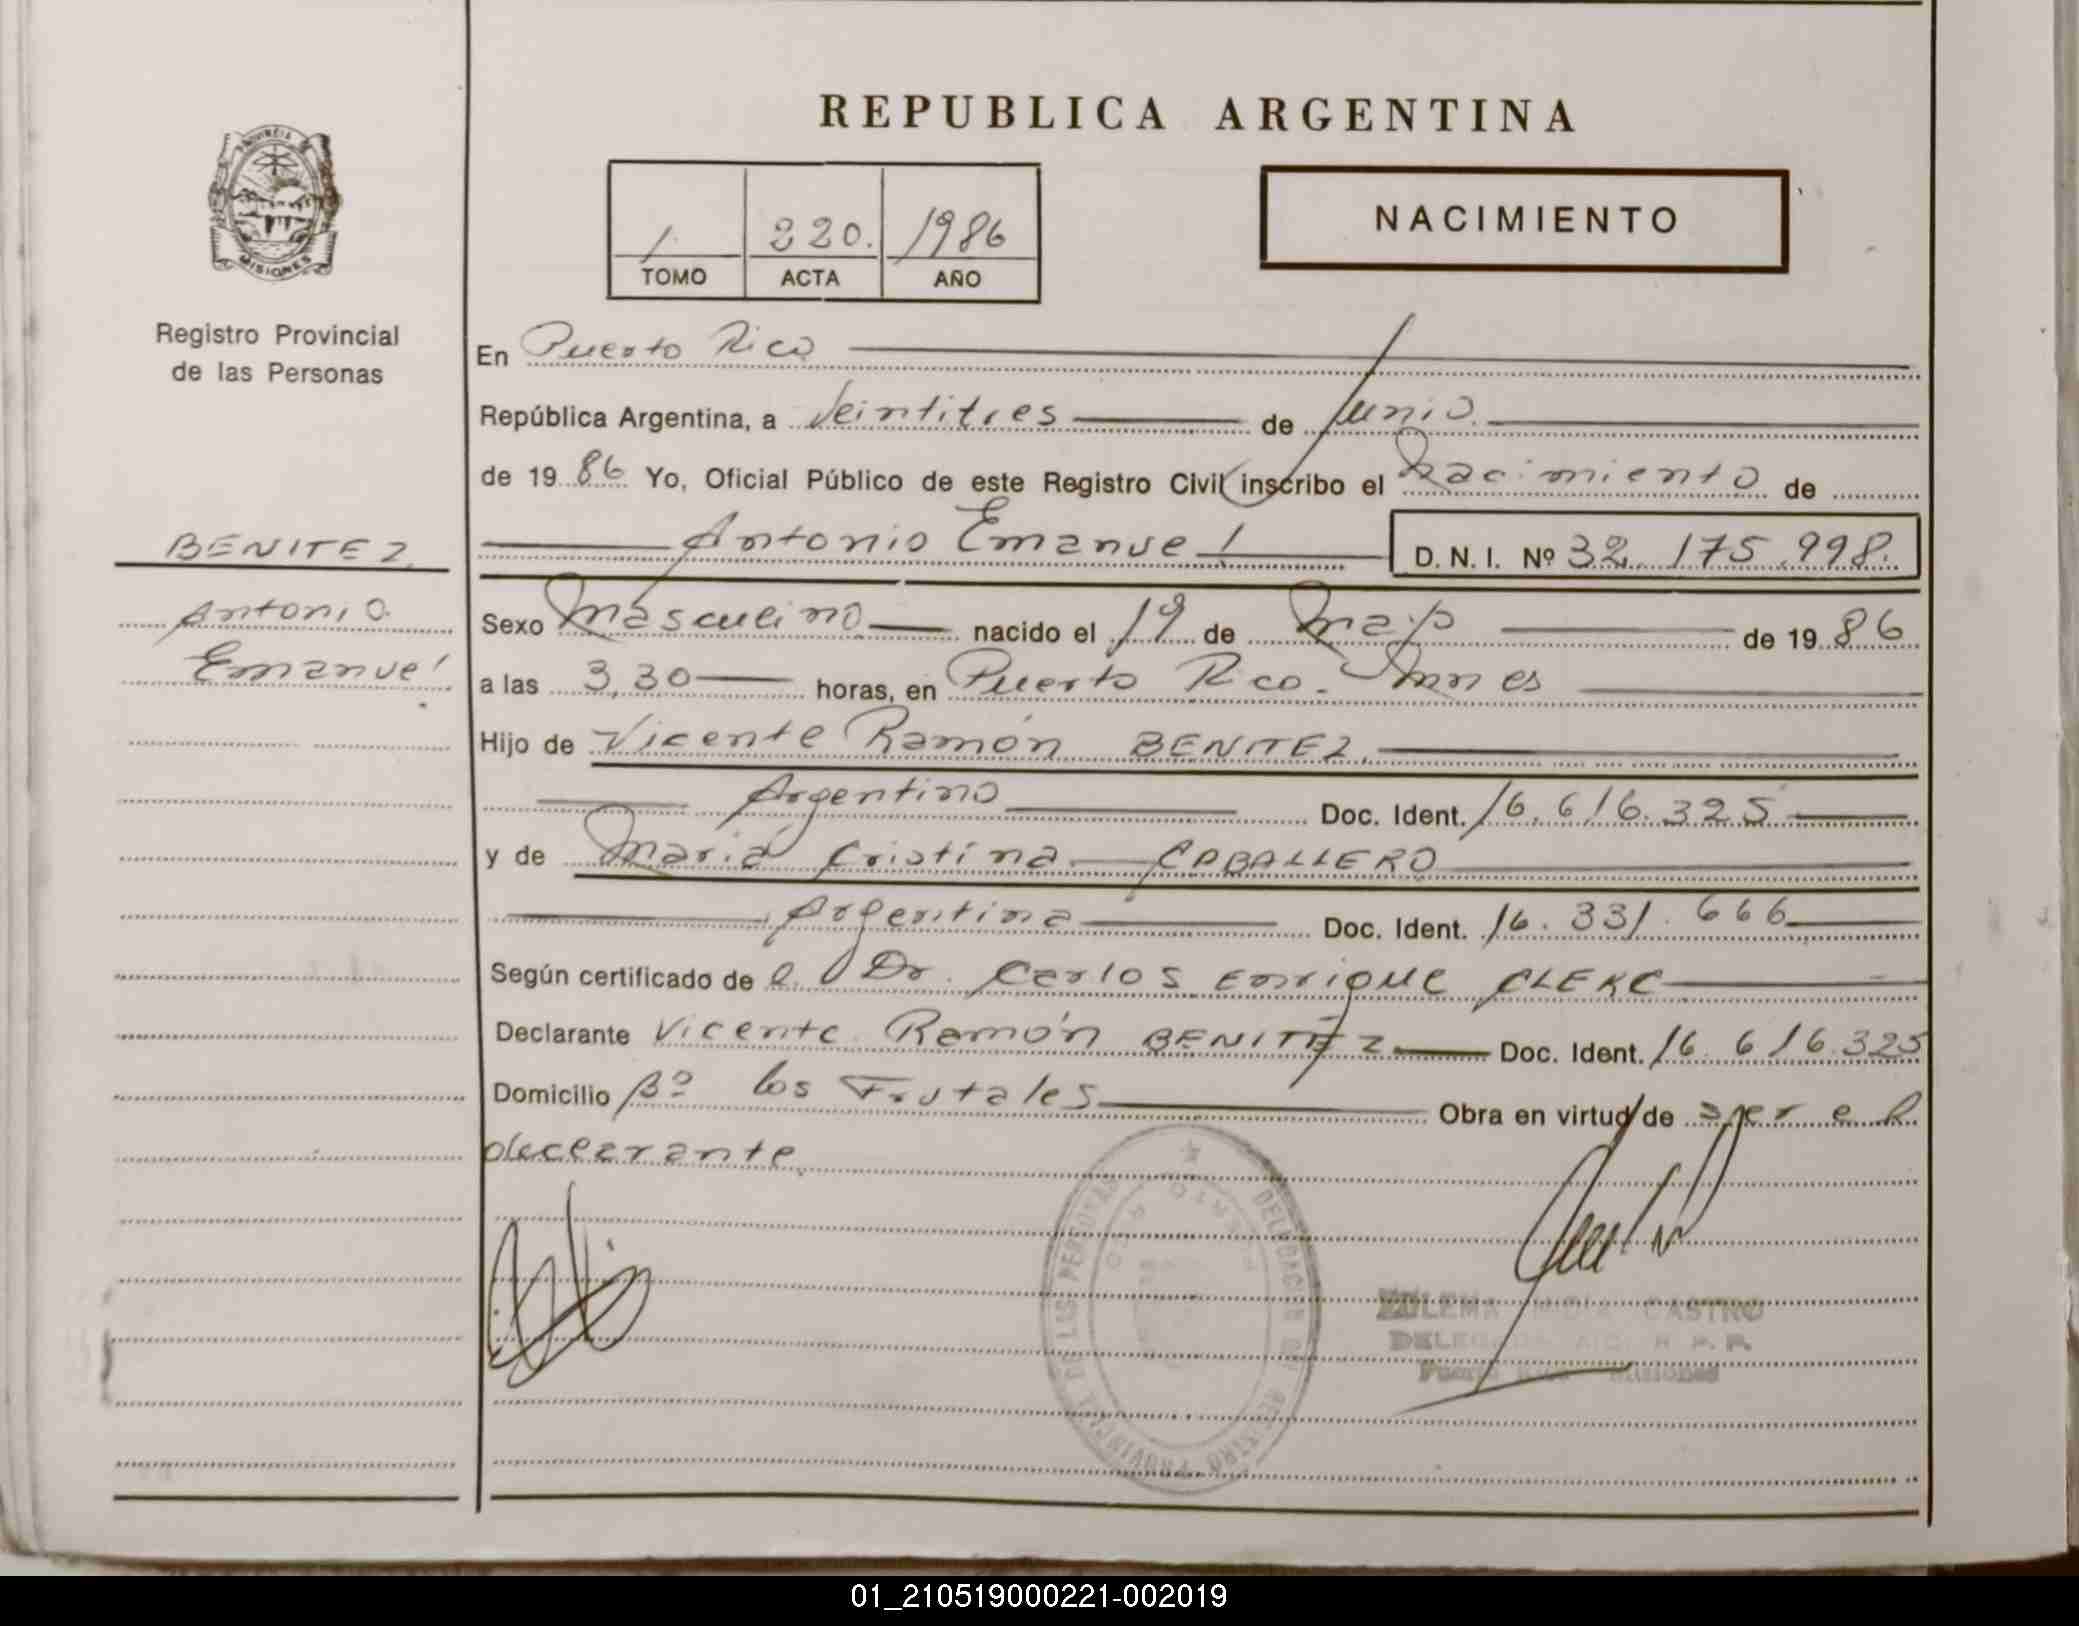 REPUBLICA ARGENTINA
PROVINCIA DE
MISIONES
Registro Provincial
de las Personas
1 220. 1986
TOMO ACTA AÑO
NACIMIENTO
En Puerto Rico
República Argentina, a Veintitres de Junio
de 1986 Yo, Oficial Público de este Registro Civil inscribo el Nacimiento de
BENITEZ
Antonio Emanuel D.N.I. Nº 32.175.998.
Antonio
Emanuel
Sexo Masculino nacido el 19 de Mayo de 1986
a las 3,30 horas, en Puerto Rico. Mnes
Hijo de Vicente Ramón BENITEZ
Argentino Doc. Ident. 16.616.325
y de María Cristina CABALLERO
Argentina Doc. Ident. 16.331.666
Según certificado del Dr. Carlos Enrique CLERC
Declarante Vicente Ramón BENITEZ Doc. Ident. 16.616.325
Domicilio Bº los Frutales Obra en virtud de ser el
declarante
DELEGACION DEL REGISTRO PROVINCIAL DE LAS PERSONAS
PUERTO RICO
ZULEMA CASTRO
R. P. P.
Puerto Rico Misiones
01_210519000221-002019